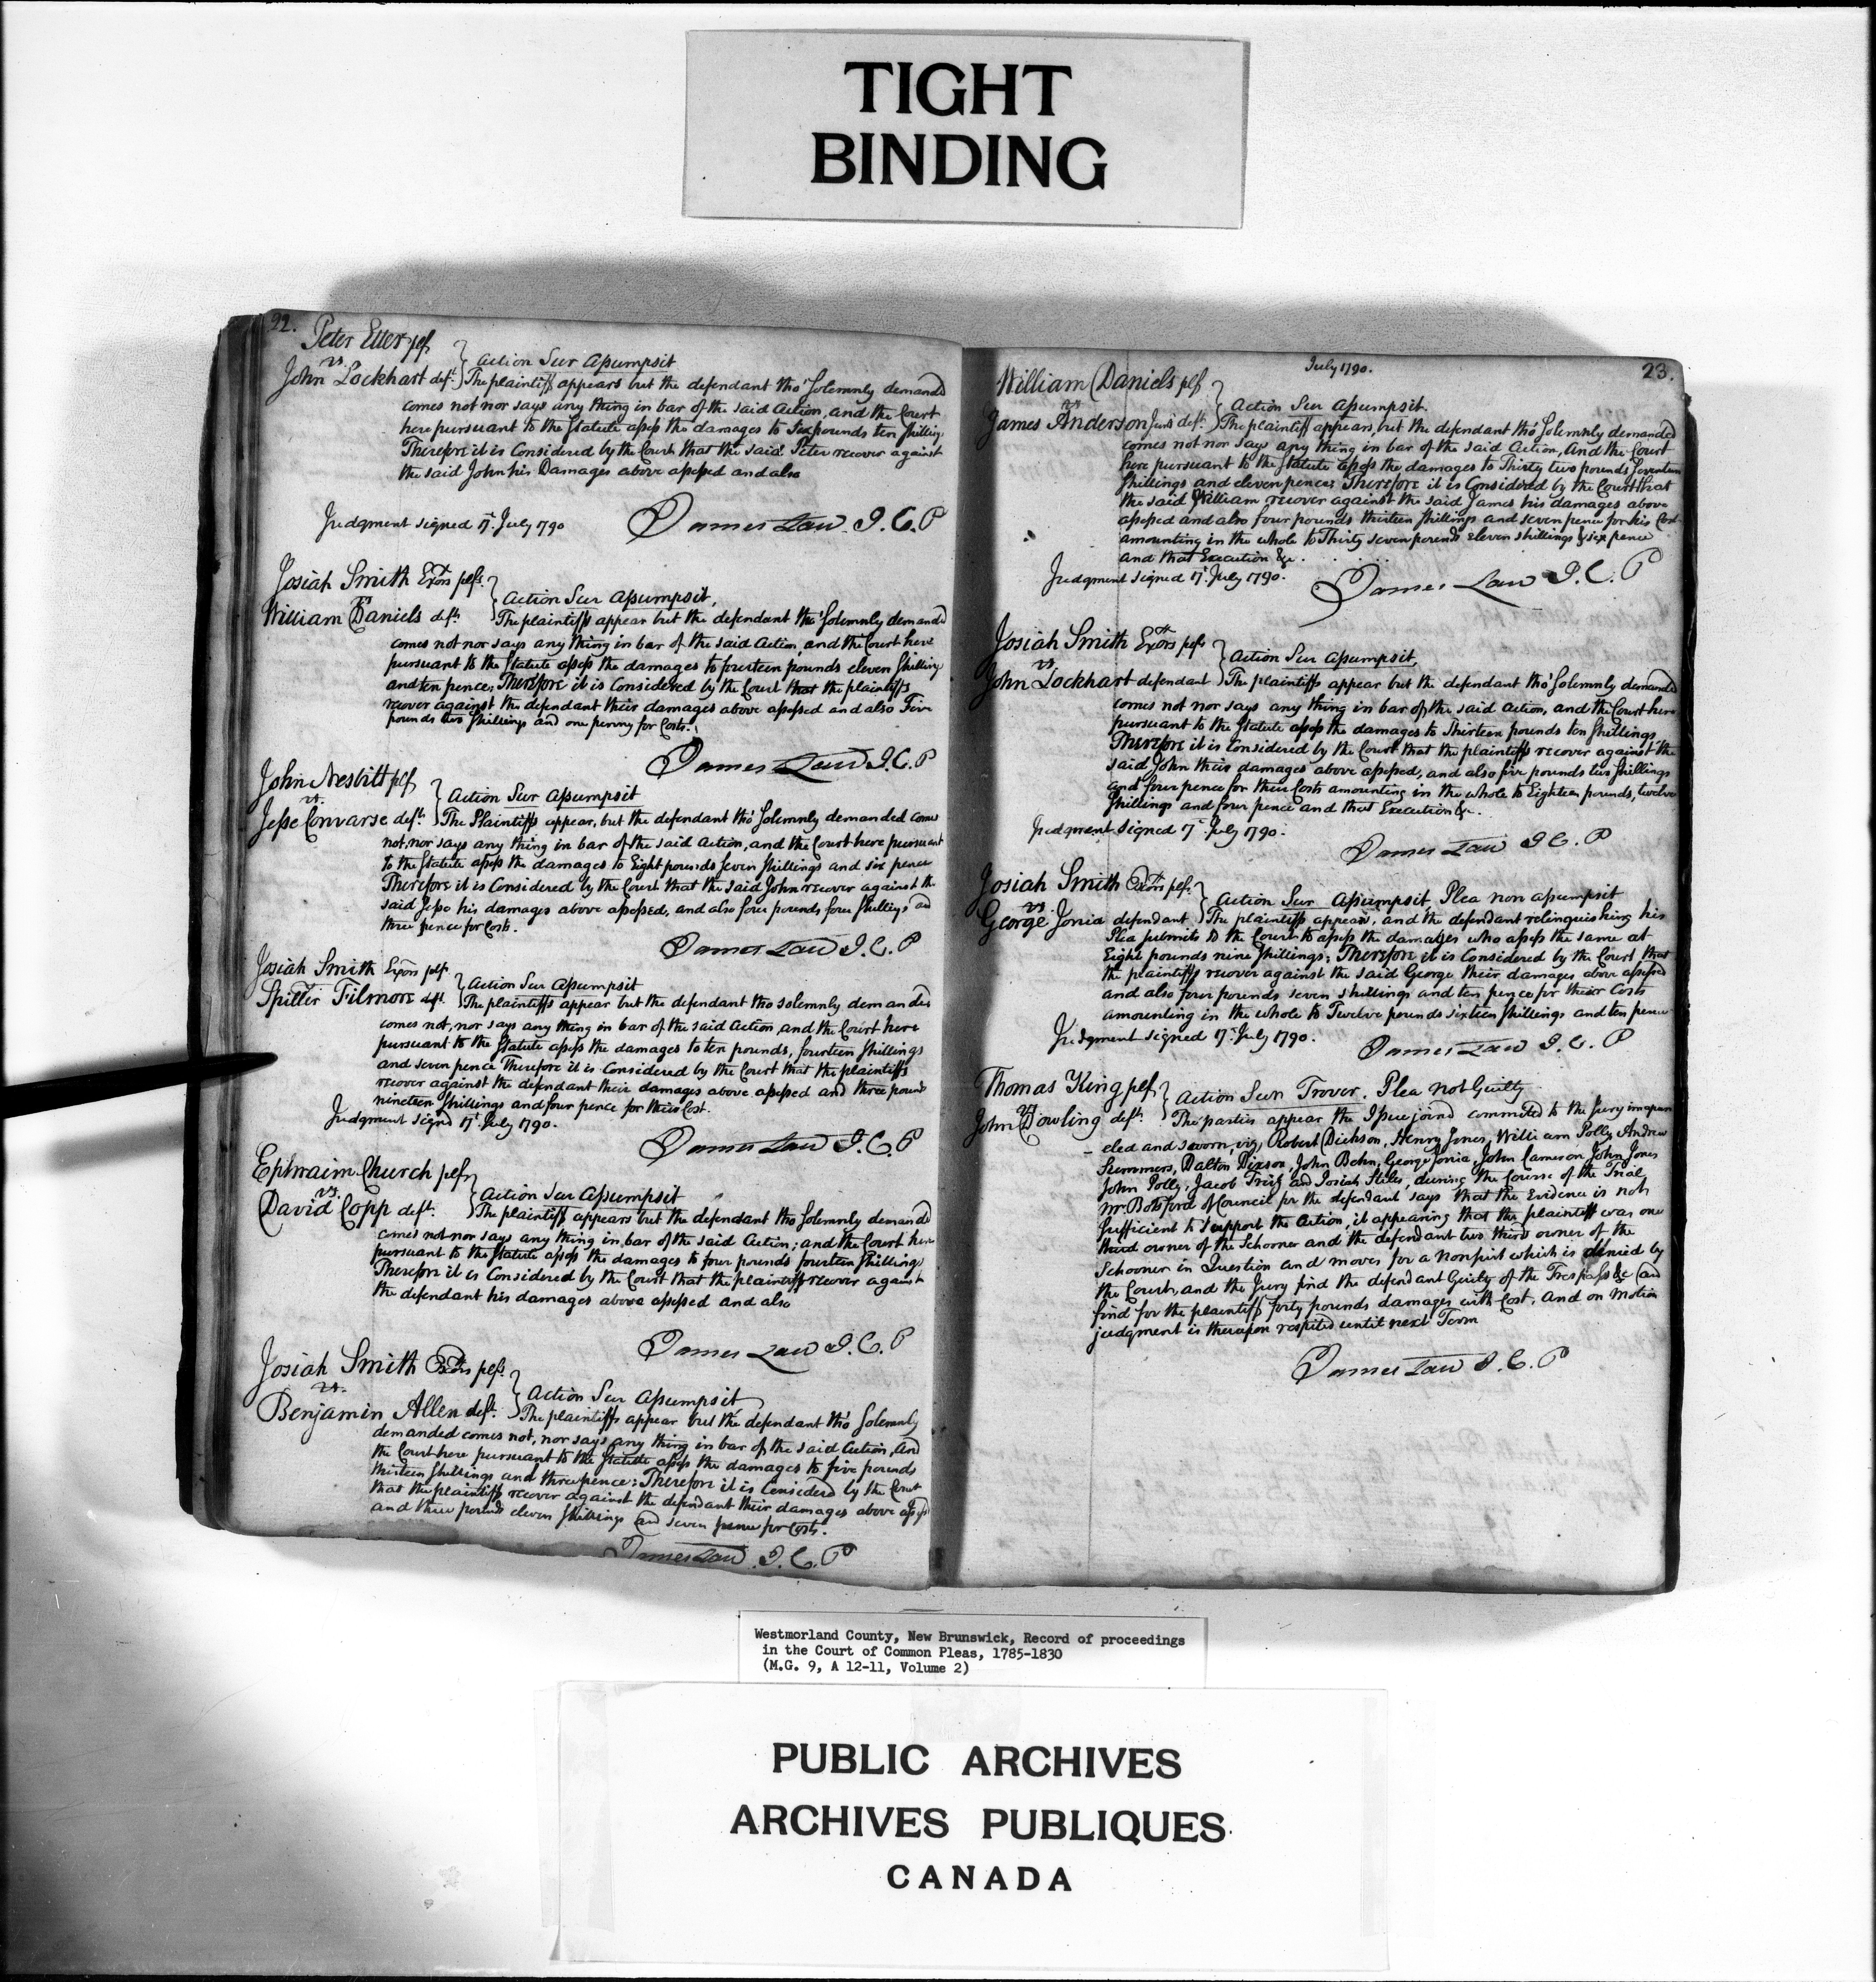 TIGHT
BINDING
22.
Peter Etter plf
vs.
John Lockhart deft.
Action Sur Assumpsit
The plaintiff appears but the defendant tho' Solemnly demanded
comes not nor says any thing in bar of the said Action, and the Court
here pursuant to the Statute assess the damages to Six pounds ten Shillings
Therefore it is Considered by the Court that the said Peter recover against
the said John his Damages above assessed and also
Judgment signed 17th July 1790
James Law J.C.P
Josiah Smith Exors plfs.
vs
William Daniels deft.
Action Sur Assumpsit,
The plaintiffs appear but the defendant tho' Solemnly demanded
comes not nor says any thing in bar of the said Action, and the Court here
pursuant to the Statute assess the damages to fourteen pounds eleven Shillings
and ten pence; Therefore it is Considered by the Court that the plaintiffs
recover against the defendant their damages above assessed and also Five
pounds two Shillings and one penny for Costs.
James Law J.C.P
John Nesbitt plf
vs.
Jesse Convarse deft.
Action Sur Assumpsit
The Plaintiffs appear, but the defendant tho' Solemnly demanded comes
not, nor says any thing in bar of the said Action, and the Court here pursuant
to the Statute assess the damages to Eight pounds Seven Shillings and six pence
Therefore it is Considered by the Court that the said John recover against the
said Jesse his damages above assessed, and also four pounds four Shillings and
three pence for Costs.
James Law J.C.P
Josiah Smith Exors plfs.
Spiller Filmore deft.
Action Sur Assumpsit
The plaintiffs appear but the defendant tho solemnly demanded
comes not, nor says any thing in bar of the said Action and the Court here
pursuant to the Statute assess the damages to ten pounds, fourteen Shillings
and seven pence Therefore it is Considered by the Court that the plaintiffs
recover against the defendant their damages above assessed and three pounds
nineteen Shillings and four pence for their Cost.
Judgment signd 17th July 1790.
James Law J.C.P
Ephraim Church plf
vs.
David Copp deft.
Action Sur Assumpsit
The plaintiff appears but the defendant tho Solemnly demanded
comes not nor says any thing in bar of the said Action; and the Court here
pursuant to the Statute assess the damages to four pounds fourteen Shillings
Therefore it is Considered by the Court that the plaintiff recover against
the defendant his damages above assessed and also
James Law J.C.P
Josiah Smith Exors plfs.
vs.
Benjamin Allen deft.
Action Sur Assumpsit
The plaintiffs appear but the defendant tho' Solemnly
demanded comes not, nor says any thing in bar of the said Action, and
the Court here pursuant to the Statute assess the damages to five pounds
thirteen Shillings and three pence: Therefore it is Considerd by the Court
that the plaintiffs recover against the defendant their damages above assessed
and three pounds eleven Shillings and seven pence for Costs.
James Law J.C.P
July 1790.
23.
William Daniels plf
vs
James Anderson Junr deft.
Action Sur Assumpsit.
The plaintiff appears, but the defendant tho' Solemnly demanded
comes not nor says any thing in bar of the said Action, and the Court
here pursuant to the Statute assess the damages to Thirty two pounds Seventeen
Shillings and eleven pence; Therefore it is Considered by the Court that
the said William recover against the said James his damages above
assessed and also four pounds thirteen Shillings and seven pence for his Cost
amounting in the whole to Thirty seven pounds eleven shillings & six pence
and that Execution &c.
Judgment signed 17th July 1790.
James Law J.C.P
Josiah Smith Exors plfs
vs.
John Lockhart defendant
Action Sur Assumpsit,
The plaintiffs appear but the defendant tho' Solemnly demanded
comes not nor says any thing in bar of the said Action, and the Court here
pursuant to the Statute assess the damages to Thirteen pounds ten Shillings
Therefore it is Considered by the Court that the plaintiffs recover against the
said John their damages above assessed, and also five pounds two Shillings
and four pence for their Costs amounting in the whole to Eighteen pounds, twelve
Shillings and four pence and that Execution &c.
Judgment Signed 17th July 1790.
James Law J C. P
Josiah Smith Exors plfs.
vs.
George Jonia defendant
Action Sur Assumpsit, Plea non assumpsit
The plaintiffs appear, and the defendant relinquishing his
Plea submits to the Court to assess the damages who assess the same at
Eight pounds nine Shillings; Therefore it is Considered by the Court that
the plaintiffs recover against the said George their damages above assessed
and also four pounds seven shillings and ten pence for their Costs
amounting in the whole to Twelve pounds sixteen Shillings and ten pence
Judgment signed 17th July 1790.
James Law J.C.P
Thomas King plf.
vs
John Dowling deft.
Action Sur Trover. Plea not Guilty
The parties appear the Issue joind commited to the Jury impan
eled and sworn, viz, Robert Dickson, Henry Jones, William Polly, Andrew
Summers, Dalton Dixson, John Behn, George Jonia, John Cameron John Jones
John Polly, Jacob Trits and Josiah Stiles, during the Course of the Trial
Mr Botsford Council for the defendant says that the Evidence is not
Sufficient to support the Action, it appearing that the plaintiff was one
third owner of the Schooner and the defendant two third owner of the
Schooner in Question and moves for a Nonsuit which is denied by
the Court, and the Jury find the defendant Guilty of the Trespass &c and
find for the plaintiff forty pounds damages with Cost, and on Motion
judgment is therupon respited until next Term
James Law J.C.P
Westmorland County, New Brunswick, Record of proceedings
in the Court of Common Pleas, 1785-1830
(M.G. 9, A 12-11, Volume 2)
PUBLIC ARCHIVES
ARCHIVES PUBLIQUES
CANADA